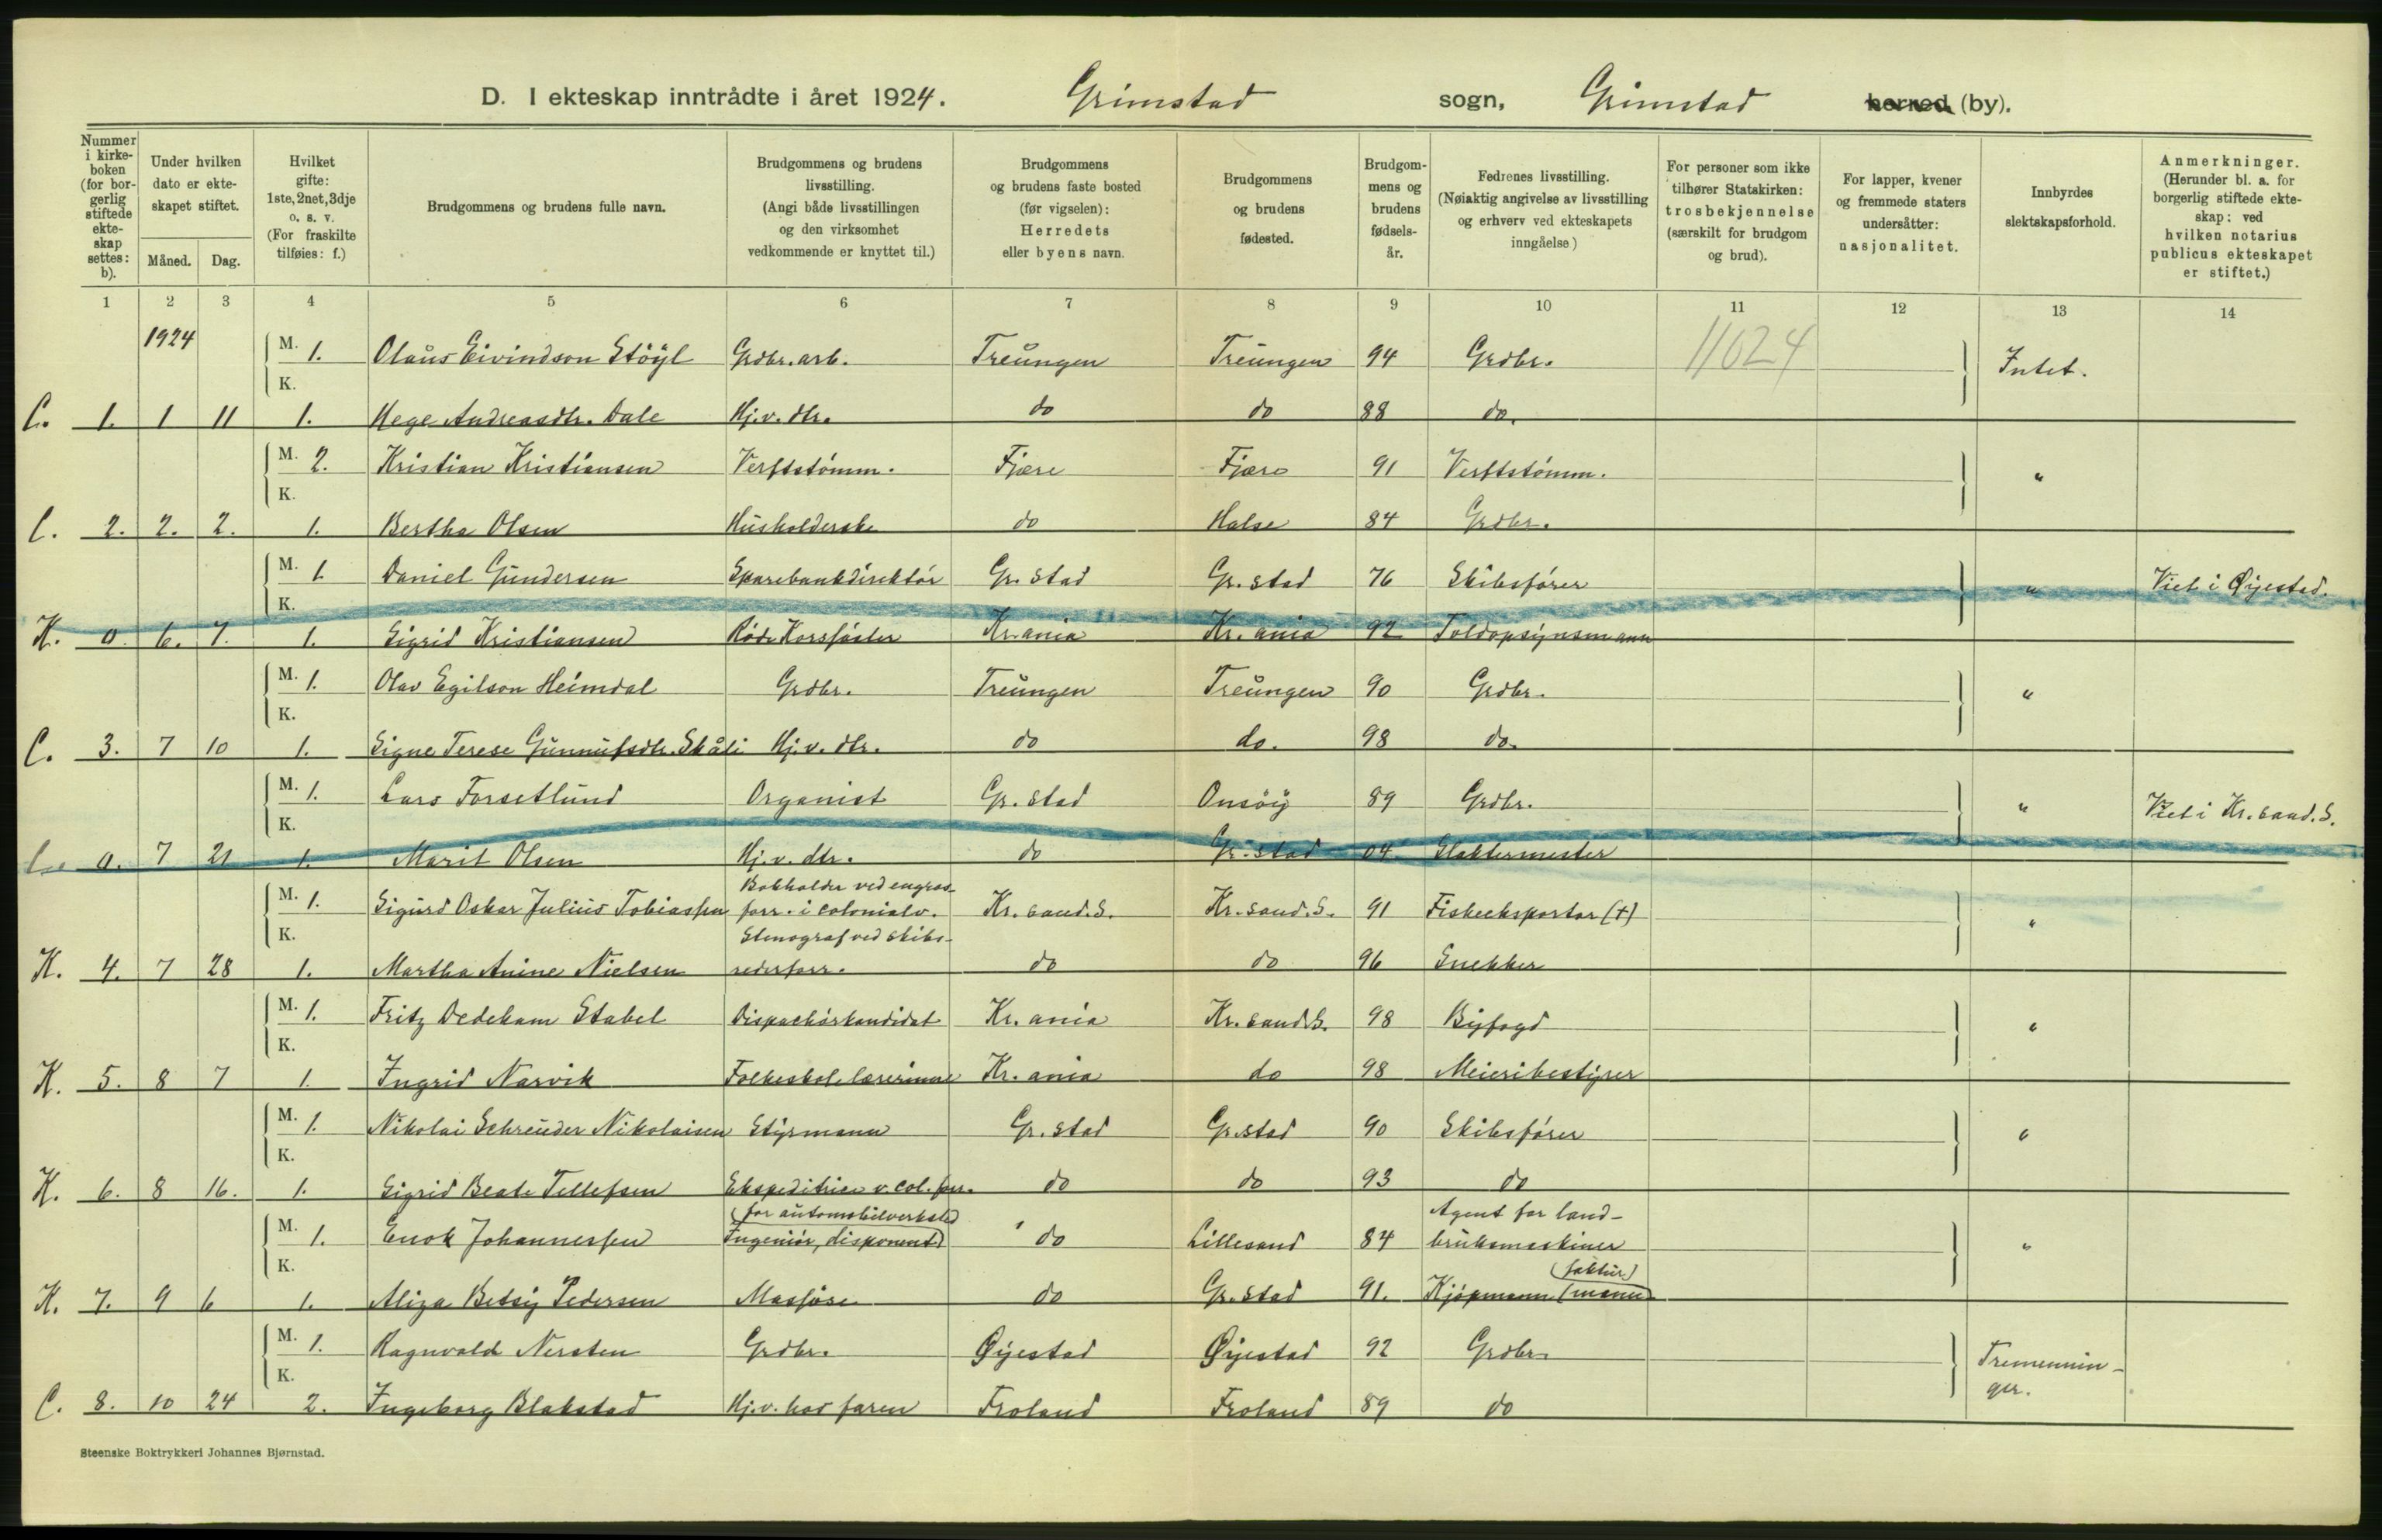 D. I ekteskap inntrådte i året 1924. Grimstad sogn, Grimstad herred (by).
Nummer i kirkeboken (for borgerlig stiftede ekteskap settes: b).
Under hvilken dato er ekteskapet stiftet.
Måned. Dag.
Hvilket gifte: 1ste, 2net, 3dje o. s. v. (For fraskilte tilføies: f.)
Brudgommens og brudens fulle navn.
Brudgommens og brudens livsstilling. (Angi både livsstillingen og den virksomhet vedkommende er knyttet til.)
Brudgommens og brudens faste bosted (før vigselen): Herredets eller byens navn.
Brudgommens og brudens fødested.
Brudgommens og brudens fødselsår.
Fedrenes livsstilling. (Nøiaktig angivelse av livsstilling og erhverv ved ekteskapets inngåelse)
For personer som ikke tilhører Statskirken: trosbekjennelse (særskilt for brudgom og brud).
For lapper, kvener og fremmede staters undersåtter: nasjonalitet.
Innbyrdes slektskapsforhold.
Anmerkninger. (Herunder bl. a. for borgerlig stiftede ekteskap: ved hvilken notarius publicus ekteskapet er stiftet.)
1 2 3 4 5 6 7 8 9 10 11 12 13 14
1924 M. 1. Olaus Eivindson Stöyl Grdbr. arb. Treungen Treungen 94 Grdbr. 11024 Intet.
K.
C. 1. 1 11 1. Hege Andreasdtr. Dale Hj.v. dtr. do do 88 do.
M. 2. Kristian Kristiansen Verftstömm. Fjære Fjære 91 Verftstömm. "
K.
C. 2. 2. 2. 1. Bertha Olsen Husholderske do Halse 84 Grdbr.
M. 1 Daniel Gundersen Sparebankdirektör Gr. stad Gr. stad 76 Skibsförer " Viet i Øjestad.
K.
K. 0. 6. 7. 1. Sigrid Kristiansen Röde Korssöster Kr. ania Kr. ania 92 Toldopsynsmann
M. 1. Olav Egilson Heimdal Grdbr. Treungen Treungen 90 Grdbr. "
K.
C. 3. 7 10 1. Signe Terese Gunnufsdtr. Skåli Hj.v. dtr. do do. 98 do.
M. 1. Lars Forsetlund Organist Gr. stad Onsöy 89 Grdbr. " Viet i Kr. sand. S.
K.
0. 7 21 1. Marit Olsen Hj.v. dtr. do Gr. stad 04 Slaktermester
Bokholder ved engros-
M. 1. Sigurd Oskar Julius Tobiassen forr. i colonialv. Kr. sand. S. Kr. sand. S. 91 Fiskeeksportør (+) "
K. Stenograf ved skibs-
K. 4. 7 28 1. Martha Anine Nielsen rederforr. do do 96 Snekker
M. 1. Fritz Dedekam Stabel Dispachörkandidat Kr. ania Kr. sand S. 98 Byfogd "
K.
K. 5. 8 7 1. Ingrid Narvik Folkeskolelærerinne Kr. ania do 98 Meieribestyrer
M. 1. Nikolai Schreuder Nikolaisen Styrmann Gr. stad Gr. stad 90 Skibsförer "
K.
K. 6. 8 16. 1. Sigrid Beate Tellefsen Ekspeditrise v. col. forr. do do 93 do
(for automobilverksted Agent for land-
M. 1. Enok Johannessen Ingeniör, disponent) do Lillesand 84 bruksmaskiner "
K. (faktur)
K. 7. 9 6 1. Aliza Betsy Pedersen Massöse do Gr. stad 91. Kjöpmann (manu
M. 1. Ragnvald Nersten Grdbr. Øjestad Øjestad 92 Grdbr. Tremennin-
K. ger.
C. 8. 10 24 2. Ingeborg Blakstad Hj.v. hos faren Froland Froland 89 do
Steenske Boktrykkeri Johannes Bjørnstad.